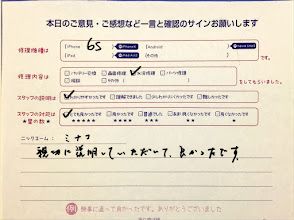 本日のご意見・ご感想など一言と確認のサインお願いします
修理機種は
iPhone 6s
Android
iPad
その他
修理内容は
バッテリー交換 画面修理 水没修理 パーツ修理
その他
をしてもらいました。
スタッフの説明は
わかりやすかったです 理解できました 少しわかりにくかったです 難しかったです
スタッフの対応は
★星の数★
とても良かったです 良かったです 普通でした
ニックネーム: ミナコ
親切に説明していただいて、良かったです。
修理に通って良かったです。ありがとうございました